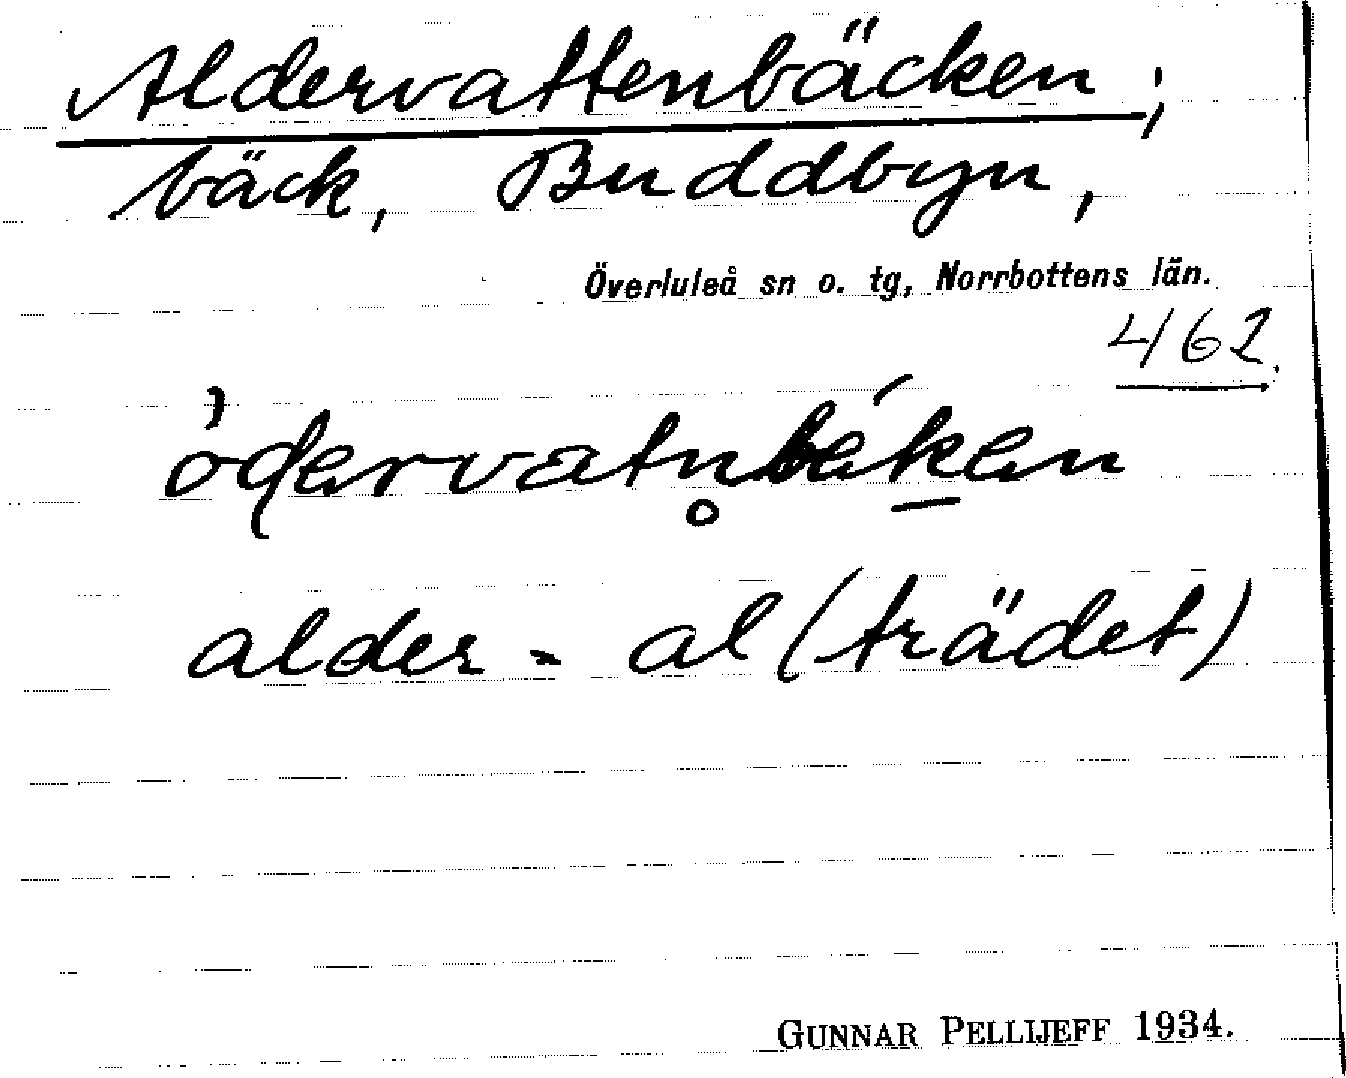 Aldervattenbäcken;
bäck, Buddbyn,
Överluleå sn o. tg, Norrbottens län.
462.
alder = al (trädet)
GUNNAR PELLIJEFF 1934.